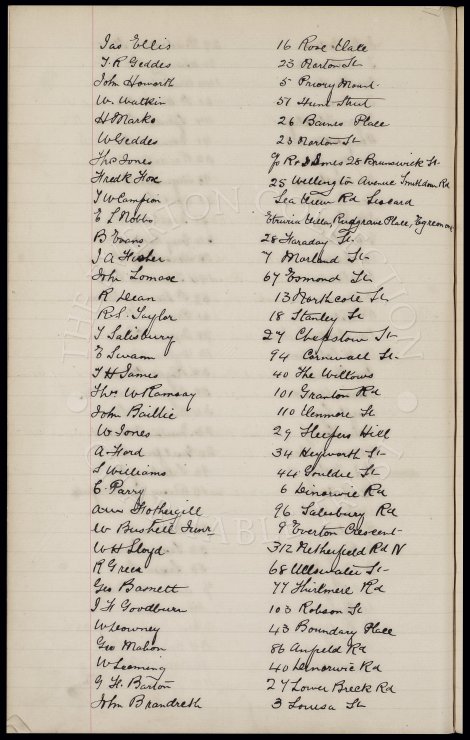 Jas Ellis 16 Rose Vale
T. R Geddes 23 Norton St
John Howorth 5 Priory Mount
W. Watkin 51 Hume Street
H Marks 26 Baines Place
W Geddes 23 Norton St
Thos Jones R Jones 28 Brunswick St
Fredk Fox 25 Wellington Avenue Smithdown Rd
J W Campion Sea View Rd Liscard
E L Nobbs Etruria Villa, Rudgrave Place, Egremont
B Evans 28 Faraday St
J A Fisher 7 Morland St
John Lomax 67 Esmond St
R Dean 13 Northcote St
R. S. Taylor 18 Stanley St
T Salisbury 27 Chepstow St
E Swann 94 Cornwall St
T H James 40 The Willows
Thos W Ramsay 101 Granton Rd
John Baillie 110 Venmore St
W Jones 29 Sleepers Hill
A Ford 34 Heyworth St
S Williams 44 Gouldie St
C Parry 6 Dinorwic Rd
Fothergill 96 Salisbury Rd
W Bushell Junr 9 Everton Crescent
W H Lloyd 312 Netherfield Rd N
R Green 68 Ullswater St
Geo Barnett 77 Thirlmere Rd
J H Goodburn 103 Robson St
W Downey 43 Boundary Place
Geo Mahon 86 Anfield Rd
W Leeming 40 Dinorwic Rd
G H. Barton 27 Lower Breck Rd
John Brandreth 3 Louisa St
THE EVERTON COLLECTION
CHARITABLE TRUST